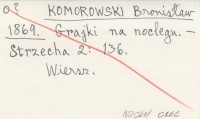 o? KOMOROWSKI Bronisław
1869. Grajki na noclegu. -
Strzecha 2: 136.
Wiersz.